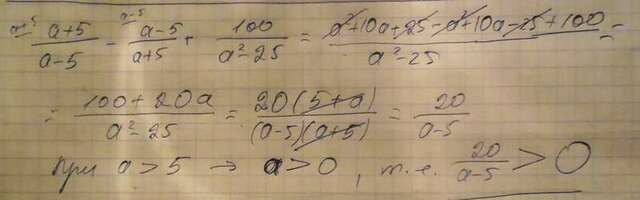 a+5 (a+5)/(a-5) - a-5 (a-5)/(a+5) + 100/(a²-25) = (a²+10a+25-a²+10a-25+100)/(a²-25) =
= (100+20a)/(a²-25) = 20(5+a)/((a-5)(a+5)) = 20/(a-5)
при a>5 → a>0, т.е. 20/(a-5) > 0